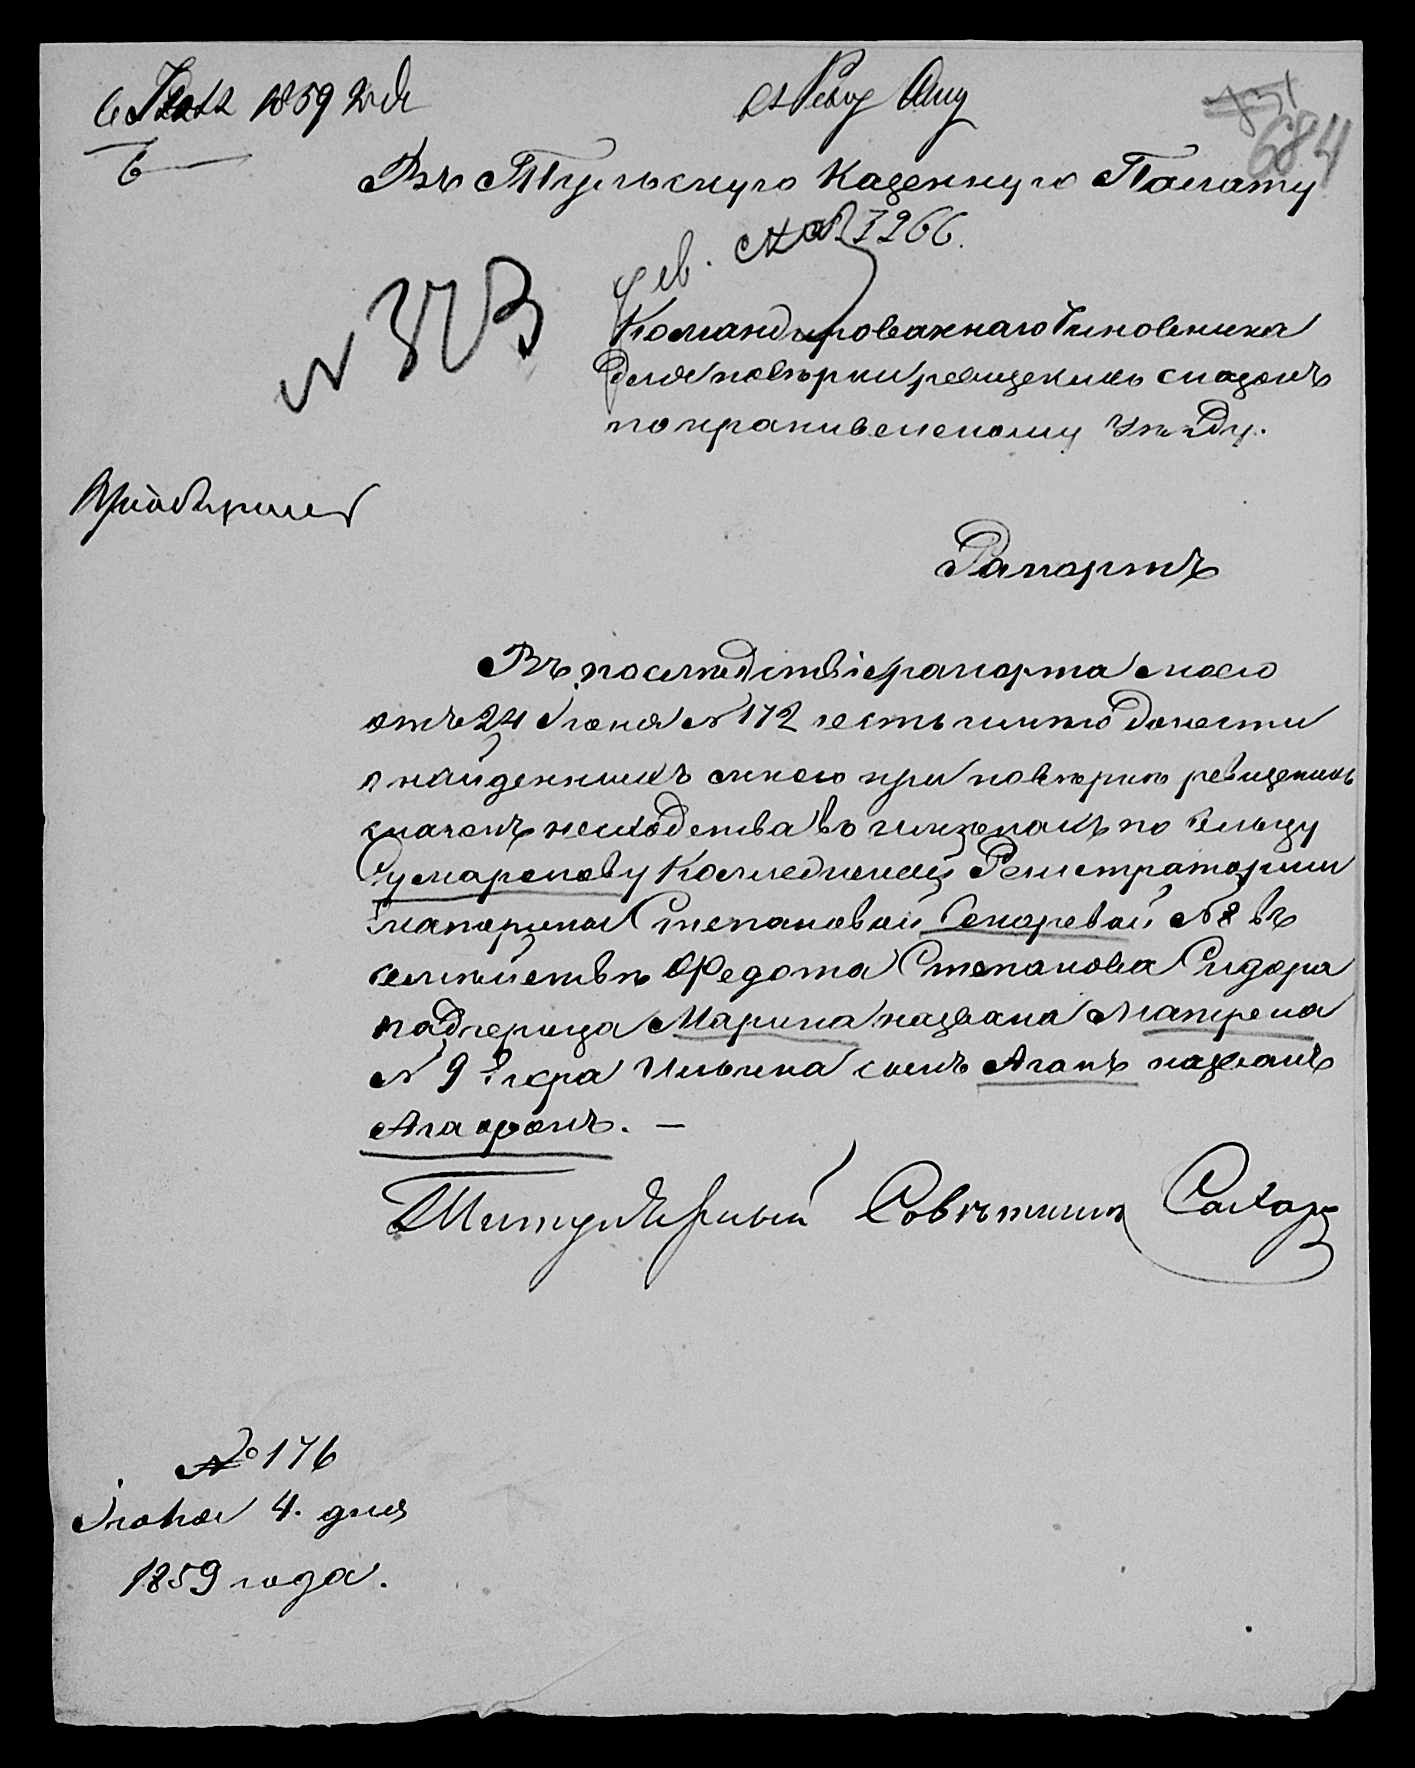 6 1859 года
6
684
Въ Тульскую Казенную Палату
рев. № 1266.
№ 373
Командированнаго Чиновника
для повѣрки ревизскихъ сказокъ
по крапивенскому уѣзду.
Пріобщить
Рапортъ
Въ последствіе рапорта моего
отъ 24 Іюня № 172 честь имѣю донести
о найденныхъ мною при повѣркѣ ревизскихъ
сказокъ несходства въ имѣніяхъ по сельцу
Сумарокову Коллежской Регистраторши
Катерины Степановой № 8 въ
семействѣ Федота Степанова Сидора
падчерица Марина названа Матрена
№ 9 Егора Ильина сынъ Агапъ названъ
Агафонъ. —
Титулярный Совѣтникъ
№ 176
4. дня
1859 года.